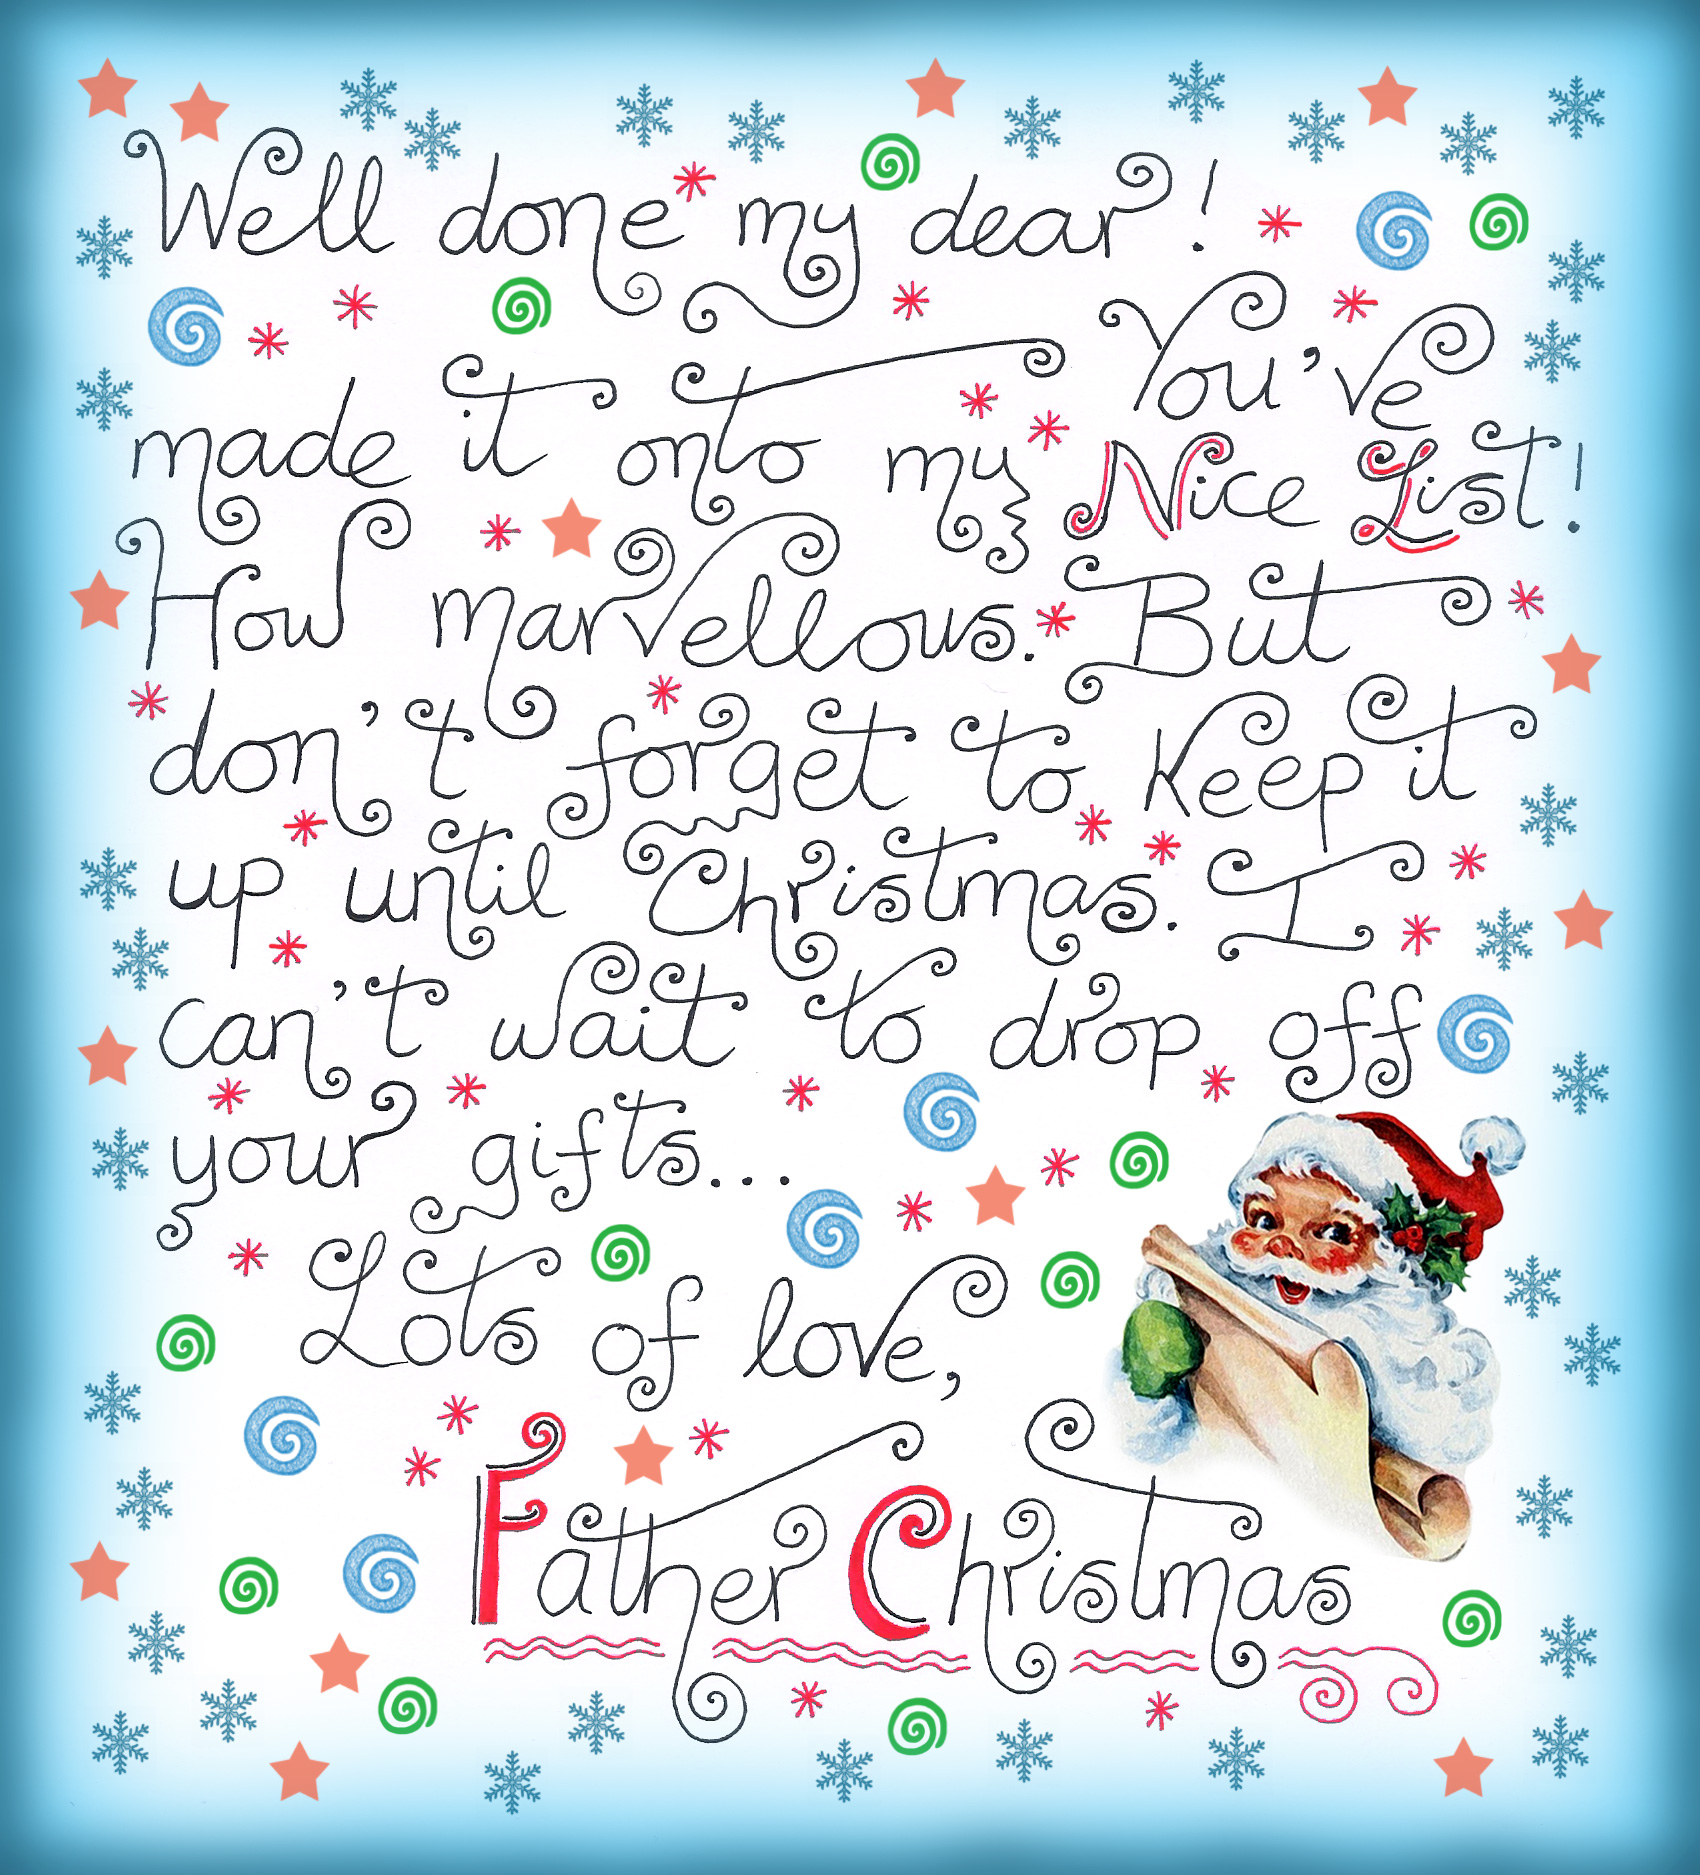 Well done my dear! You've
made it onto my Nice List!
How marvellous. But
don't forget to keep it
up until Christmas. I
can't wait to drop off
your gifts...
Lots of love,
Father Christmas